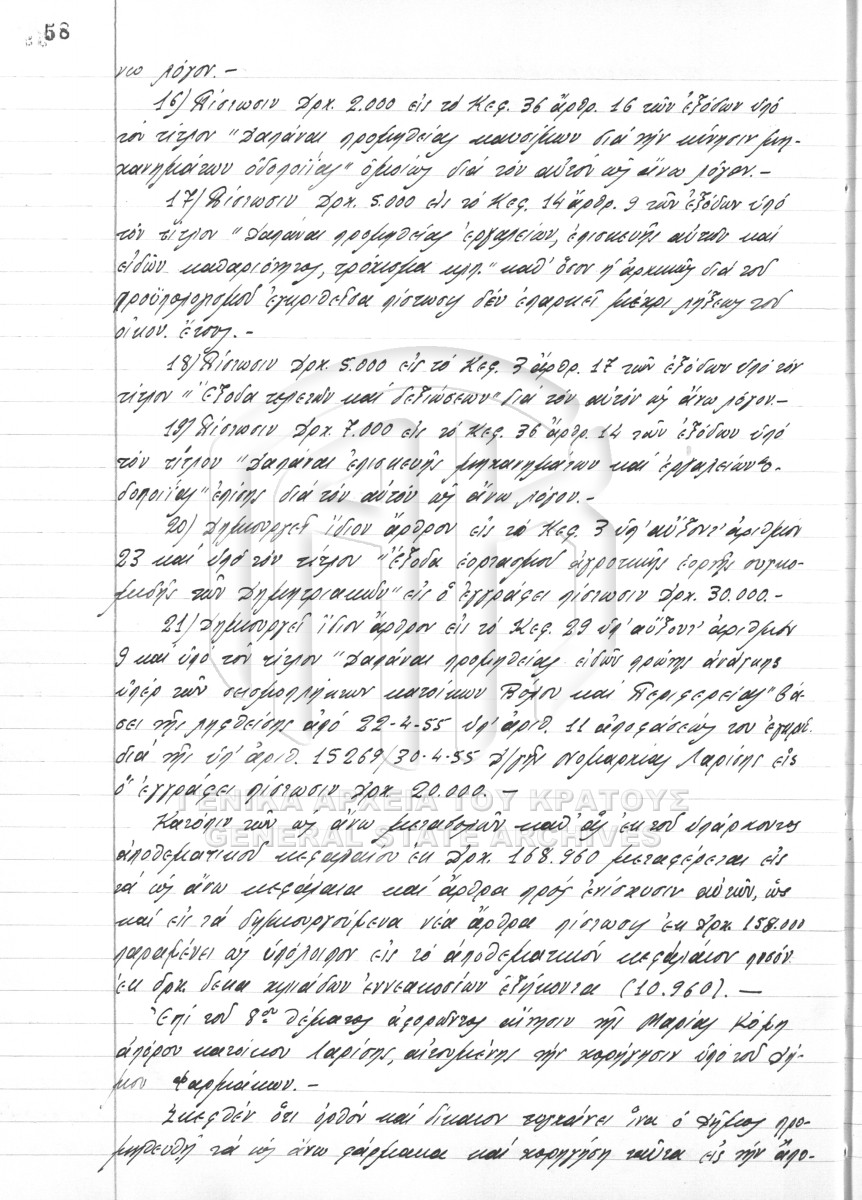 58
νω λόγον.-
16) Πίστωσιν Δρχ. 2.000 εἰς τό Κεφ. 36 ἄρθρ. 16 τῶν ἐξόδων ὑπό
τόν τίτλον "Δαπάναι προμηθείας καυσίμων διά τήν κίνησιν μη-
χανημάτων ὁδοποιΐας" ὁμοίως διά τόν αὐτόν ὡς ἄνω λόγον.-
17) Πίστωσιν Δρχ. 5.000 εἰς τό Κεφ. 14 ἄρθρ. 9 τῶν ἐξόδων ὑπό
τόν τίτλον "Δαπάναι προμηθείας ἐργαλείων, ἐπισκευῆς αὐτῶν καί
εἰδῶν καθαριότητος, τρόχισμα κλπ." καθ' ὅσον ἡ ἀρχικῶς διά τοῦ
προϋπολογισμοῦ ἐγκριθεῖσα πίστωσις δέν ἐπαρκεῖ μέχρι λήξεως τοῦ
οἰκον. ἔτους.-
18) Πίστωσιν Δρχ. 5.000 εἰς τό Κεφ. 3 ἄρθρ. 17 τῶν ἐξόδων ὑπό τόν
τίτλον "Ἔξοδα τελετῶν καί δεξιώσεων" διά τόν αὐτόν ὡς ἄνω λόγον.-
19) Πίστωσιν Δρχ. 7.000 εἰς τό Κεφ. 36 ἄρθρ. 14 τῶν ἐξόδων ὑπό
τόν τίτλον "Δαπάναι ἐπισκευῆς μηχανημάτων καί ἐργαλείων ὁ-
δοποιΐας" ἐπίσης διά τόν αὐτόν ὡς ἄνω λόγον.-
20) Δημιουργεῖ ἴδιον ἄρθρον εἰς τό Κεφ. 3 ὑπ' αὔξοντ' ἀριθμόν
23 καί ὑπό τόν τίτλον "Ἔξοδα ἑορτασμοῦ ἀγροτικῆς ἑορτῆς συγκο-
μιδῆς τῶν Δημητριακῶν" εἰς ὅ ἐγγράφει πίστωσιν Δρχ. 30.000.-
21) Δημιουργεῖ ἴδιον ἄρθρον εἰς τό Κεφ. 29 ὑπ' αὔξοντ' ἀριθμόν
9 καί ὑπό τόν τίτλον "Δαπάναι προμηθείας εἰδῶν πρώτης ἀνάγκης
ὑπέρ τῶν σεισμοπλήκτων κατοίκων Βόλου καί Περιφερείας" βά-
σει τῆς ληφθείσης ἀπό 22-4-55 ὑπ' ἀριθ. 11 ἀποφάσεώς του ἐγκριθ.
διά τῆς ὑπ' ἀριθ. 15269/30-4-55 Δ/γῆς Νομαρχίας Λαρίσης εἰς
ὅ ἐγγράφει πίστωσιν Δρχ. 20.000. -
ΓΕΝΙΚΑ ΑΡΧΕΙΑ ΤΟΥ ΚΡΑΤΟΥΣ
GENERAL STATE ARCHIVES
Κατόπιν τῶν ὡς ἄνω μεταβολῶν καθ' ἅς ἐκ τοῦ ὑπάρχοντος
ἀποθεματικοῦ κεφαλαίου ἐκ Δρχ. 168.960 μεταφέρεται εἰς
τά ὡς ἄνω κεφάλαια καί ἄρθρα πρός ἐνίσχυσιν αὐτῶν, ὡς
καί εἰς τά δημιουργούμενα νέα ἄρθρα πίστωσις ἐκ Δρχ. 158.000
παραμένει ὡς ὑπόλοιπον εἰς τό ἀποθεματικόν κεφάλαιον ποσόν
ἐκ δρχ. δέκα χιλιάδων ἐννεακοσίων ἑξήκοντα (10.960). —
Ἐπί τοῦ 8ου θέματος ἀφορῶντος αἴτησιν τῆς Μαρίας Κόμη
ἀπόρου κατοίκου Λαρίσης, αἰτουμένης τήν χορήγησιν ὑπό τοῦ Δή-
μου φαρμάκων.-
Σκεφθέν ὅτι ὀρθόν καί δίκαιον τυγχάνει ἵνα ὁ Δῆμος προ-
μηθευθῇ τά ὡς ἄνω φάρμακα καί χορηγήσῃ ταῦτα εἰς τήν ἄπο-